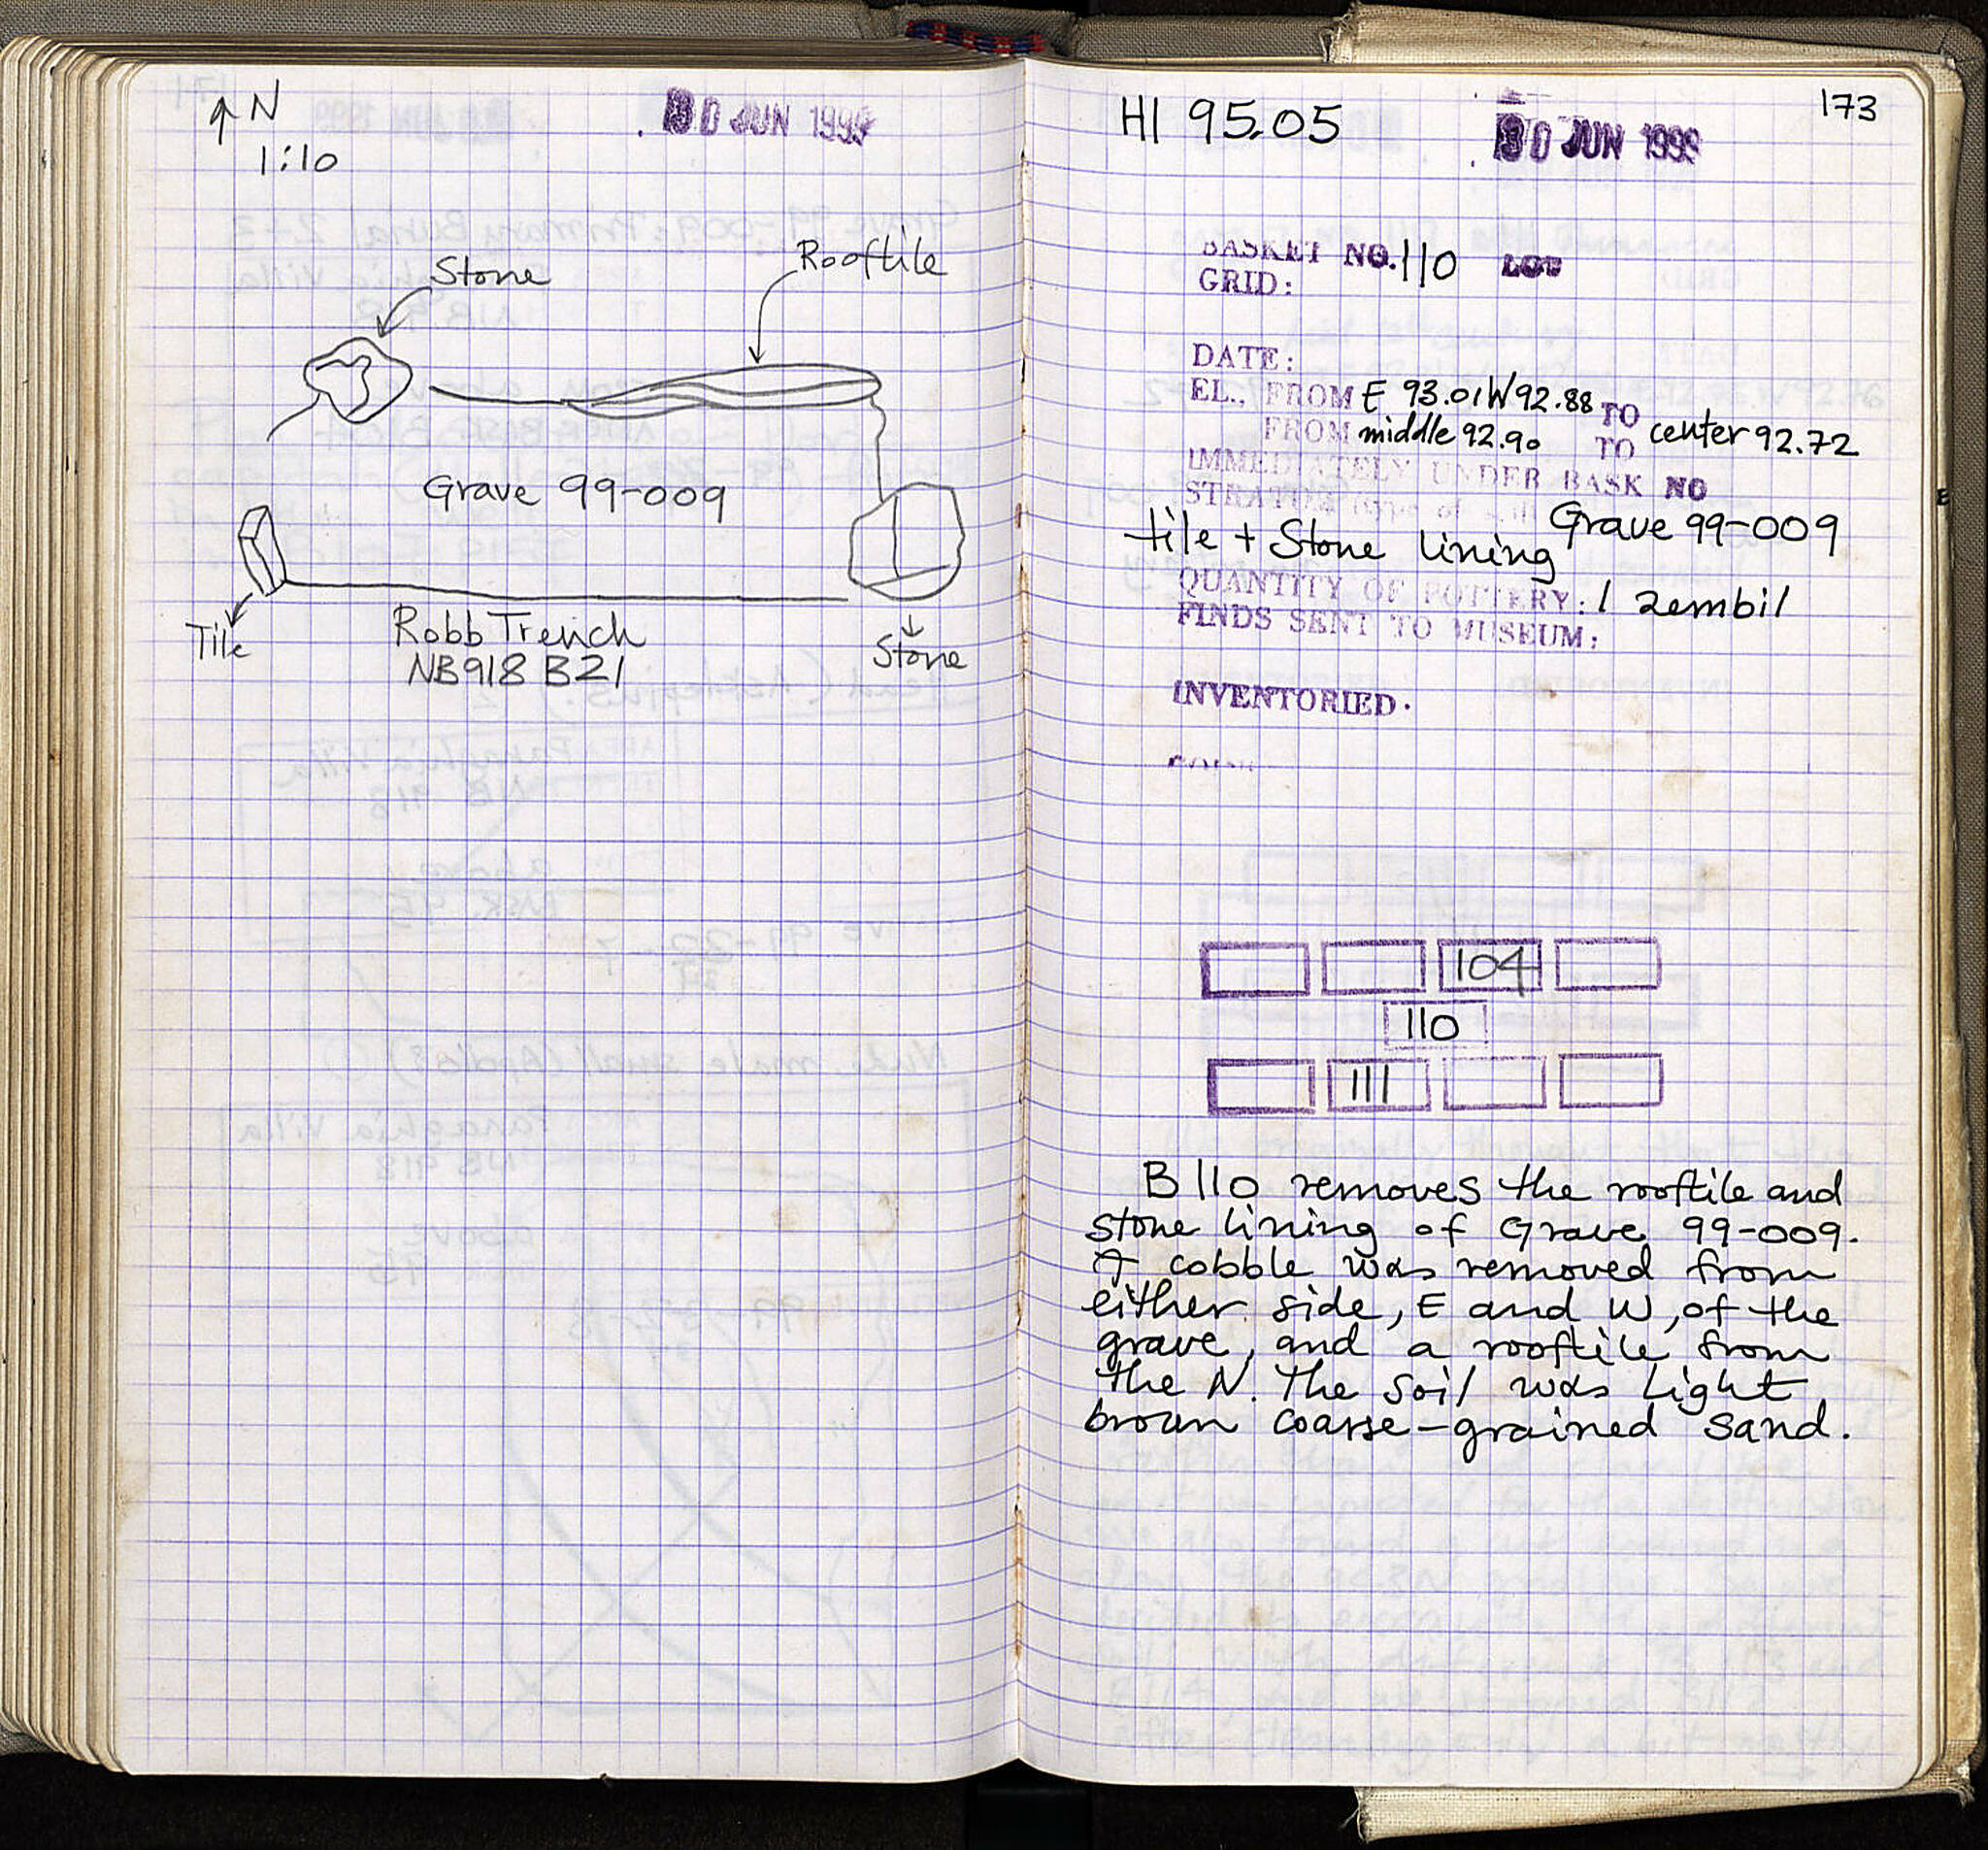 ↑ N
1:10
30 JUN 1999
Stone
Rooftile
Grave 99-009
Tile
Robb Trench
NB918 B21
Stone
HI 95.05
30 JUN 1999
173
BASKET NO. 110 LOT
GRID:
DATE:
EL., FROM E 93.01 W 92.88 TO
FROM middle 92.90 TO center 92.72
IMMEDIATELY UNDER BASK NO
STRATUM (type of soil) Grave 99-009
tile + Stone lining
QUANTITY OF POTTERY: 1 zembil
FINDS SENT TO MUSEUM:
INVENTORIED.
104
110
111
B110 removes the rooftile and
stone lining of Grave 99-009.
A cobble was removed from
either side, E and W, of the
grave, and a rooftile from
the N. The soil was light
brown coarse-grained sand.